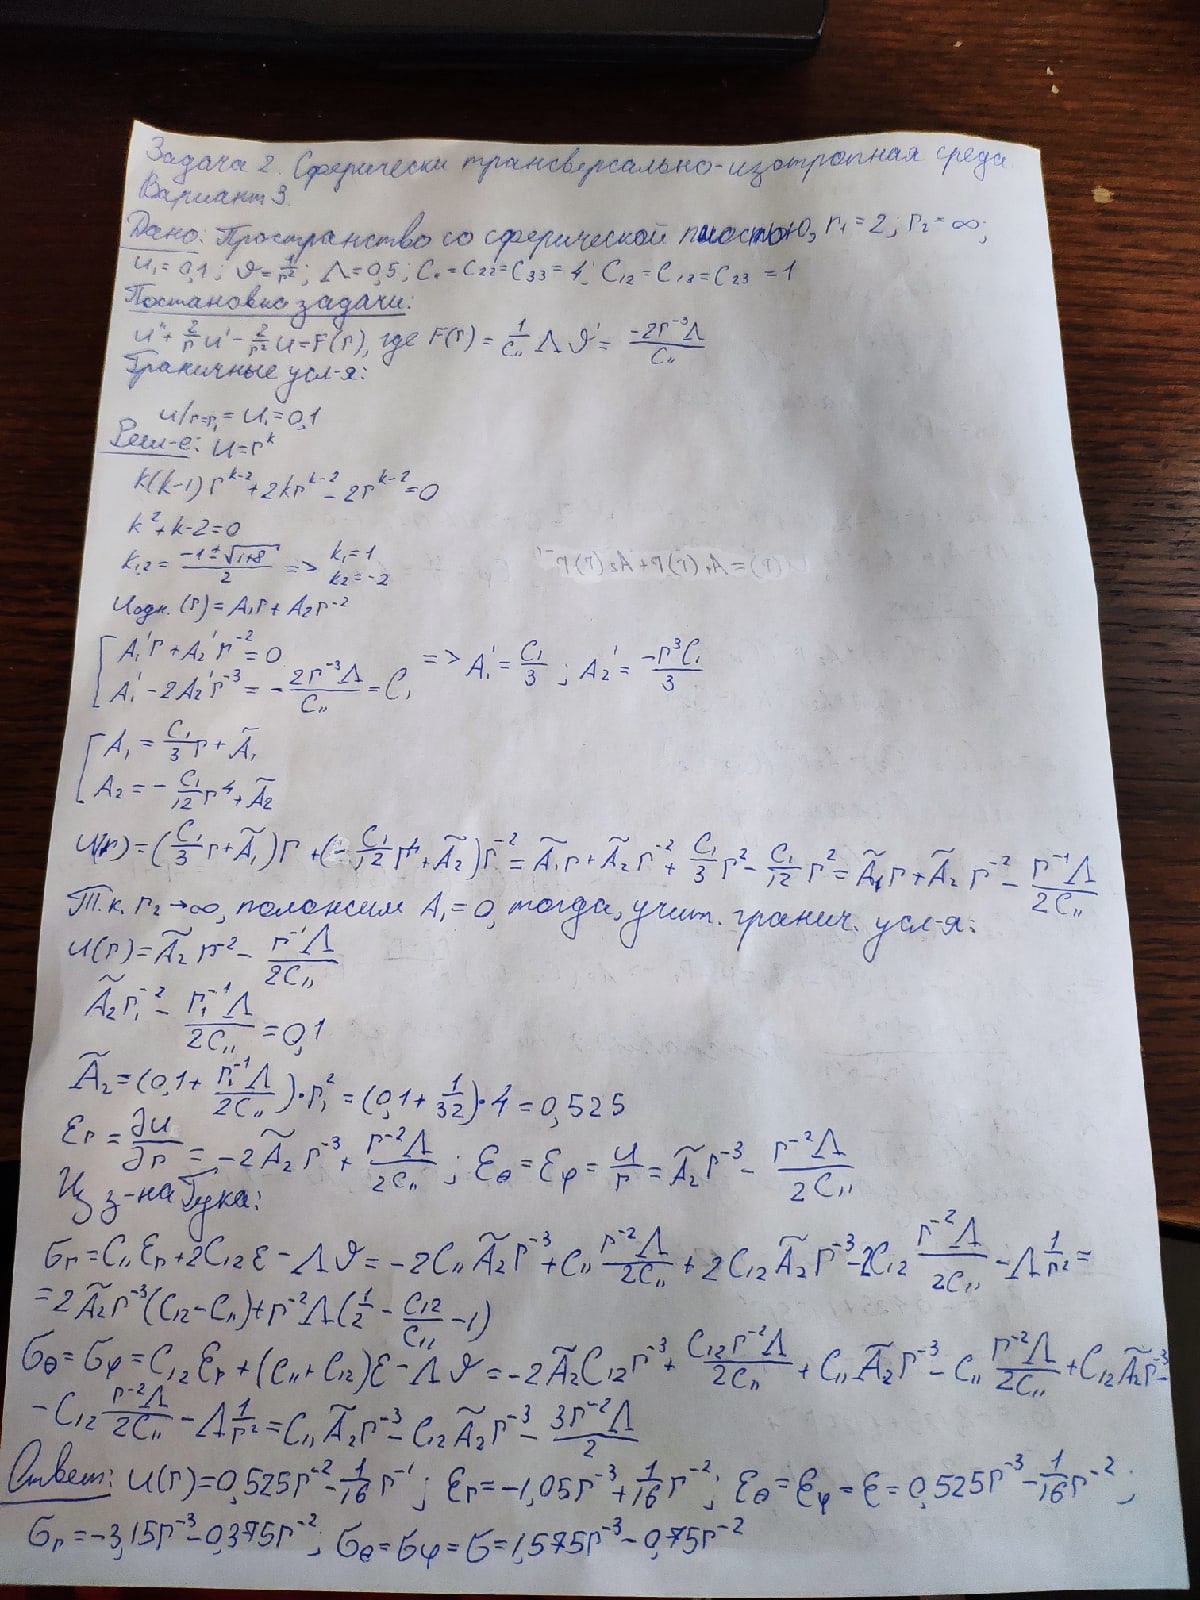 Задача 2. Сферически трансверсально-изотропная среда
Вариант 3.
Дано: Пространство со сферической полостью, r₁ = 2; r₂ = ∞;
u₁ = 0,1; ϑ = 1/r²; Λ = 0,5; C₁₁ = C₂₂ = C₃₃ = 4; C₁₂ = C₁₃ = C₂₃ = 1
Постановка задачи:
u'' + 2/r u' - 2/r² u = F(r), где F(r) = 1/C₁₁ Λϑ' = -2r⁻³Λ/C₁₁
Граничные усл-я:
u|r=r₁ = u₁ = 0,1
Реш-е: u = rᵏ
k(k-1)rᵏ⁻² + 2krᵏ⁻² - 2rᵏ⁻² = 0
k² + k - 2 = 0
k₁,₂ = (-1 ± √(1+8))/2 => k₁ = 1 k₂ = -2
u одн. (r) = A₁r + A₂r⁻²
A₁'r + A₂'r⁻² = 0
A₁' - 2A₂'r⁻³ = -2r⁻³Λ/C₁₁ = C₁ => A₁' = C₁/3; A₂' = -r³C₁/3
A₁ = C₁/3 r + Ã₁
A₂ = -C₁/12 r⁴ + Ã₂
u(r) = (C₁/3 r + Ã₁)r + (-C₁/12 r⁴ + Ã₂)r⁻² = Ã₁r + Ã₂r⁻² + C₁/3 r² - C₁/12 r² = Ã₁r + Ã₂r⁻² - r⁻¹Λ/2C₁₁
Т.к. r₂→∞, положим A₁ = 0, тогда, учит. гранич. усл-я:
u(r) = Ã₂r⁻² - r⁻¹Λ/2C₁₁
Ã₂r₁⁻² - r₁⁻¹Λ/2C₁₁ = 0,1
Ã₂ = (0,1 + r₁⁻¹Λ/2C₁₁)·r₁² = (0,1 + 1/32)·4 = 0,525
εr = ∂u/∂r = -2Ã₂r⁻³ + r⁻²Λ/2C₁₁; εθ = εφ = u/r = Ã₂r⁻³ - r⁻²Λ/2C₁₁
Из з-на Гука:
σr = C₁₁εr + 2C₁₂ε - Λϑ = -2C₁₁Ã₂r⁻³ + C₁₁ r⁻²Λ/2C₁₁ + 2C₁₂Ã₂r⁻³ - 2C₁₂ r⁻²Λ/2C₁₁ - Λ 1/r² =
= 2Ã₂r⁻³(C₁₂ - C₁₁) + r⁻²Λ(1/2 - C₁₂/C₁₁ - 1)
σθ = σφ = C₁₂εr + (C₁₁ + C₁₂)ε - Λϑ = -2Ã₂C₁₂r⁻³ + C₁₂r⁻²Λ/2C₁₁ + C₁₁Ã₂r⁻³ - C₁₁ r⁻²Λ/2C₁₁ + C₁₂Ã₂r⁻³ -
- C₁₂ r⁻²Λ/2C₁₁ - Λ 1/r² = C₁₁Ã₂r⁻³ - C₁₂Ã₂r⁻³ - 3r⁻²Λ/2
Ответ: u(r) = 0,525r⁻² - 1/16 r⁻¹; εr = -1,05r⁻³ + 1/16 r⁻²; εθ = εφ = ε = 0,525r⁻³ - 1/16 r⁻²;
σr = -3,15r⁻³ - 0,375r⁻²; σθ = σφ = σ = 1,575r⁻³ - 0,75r⁻²